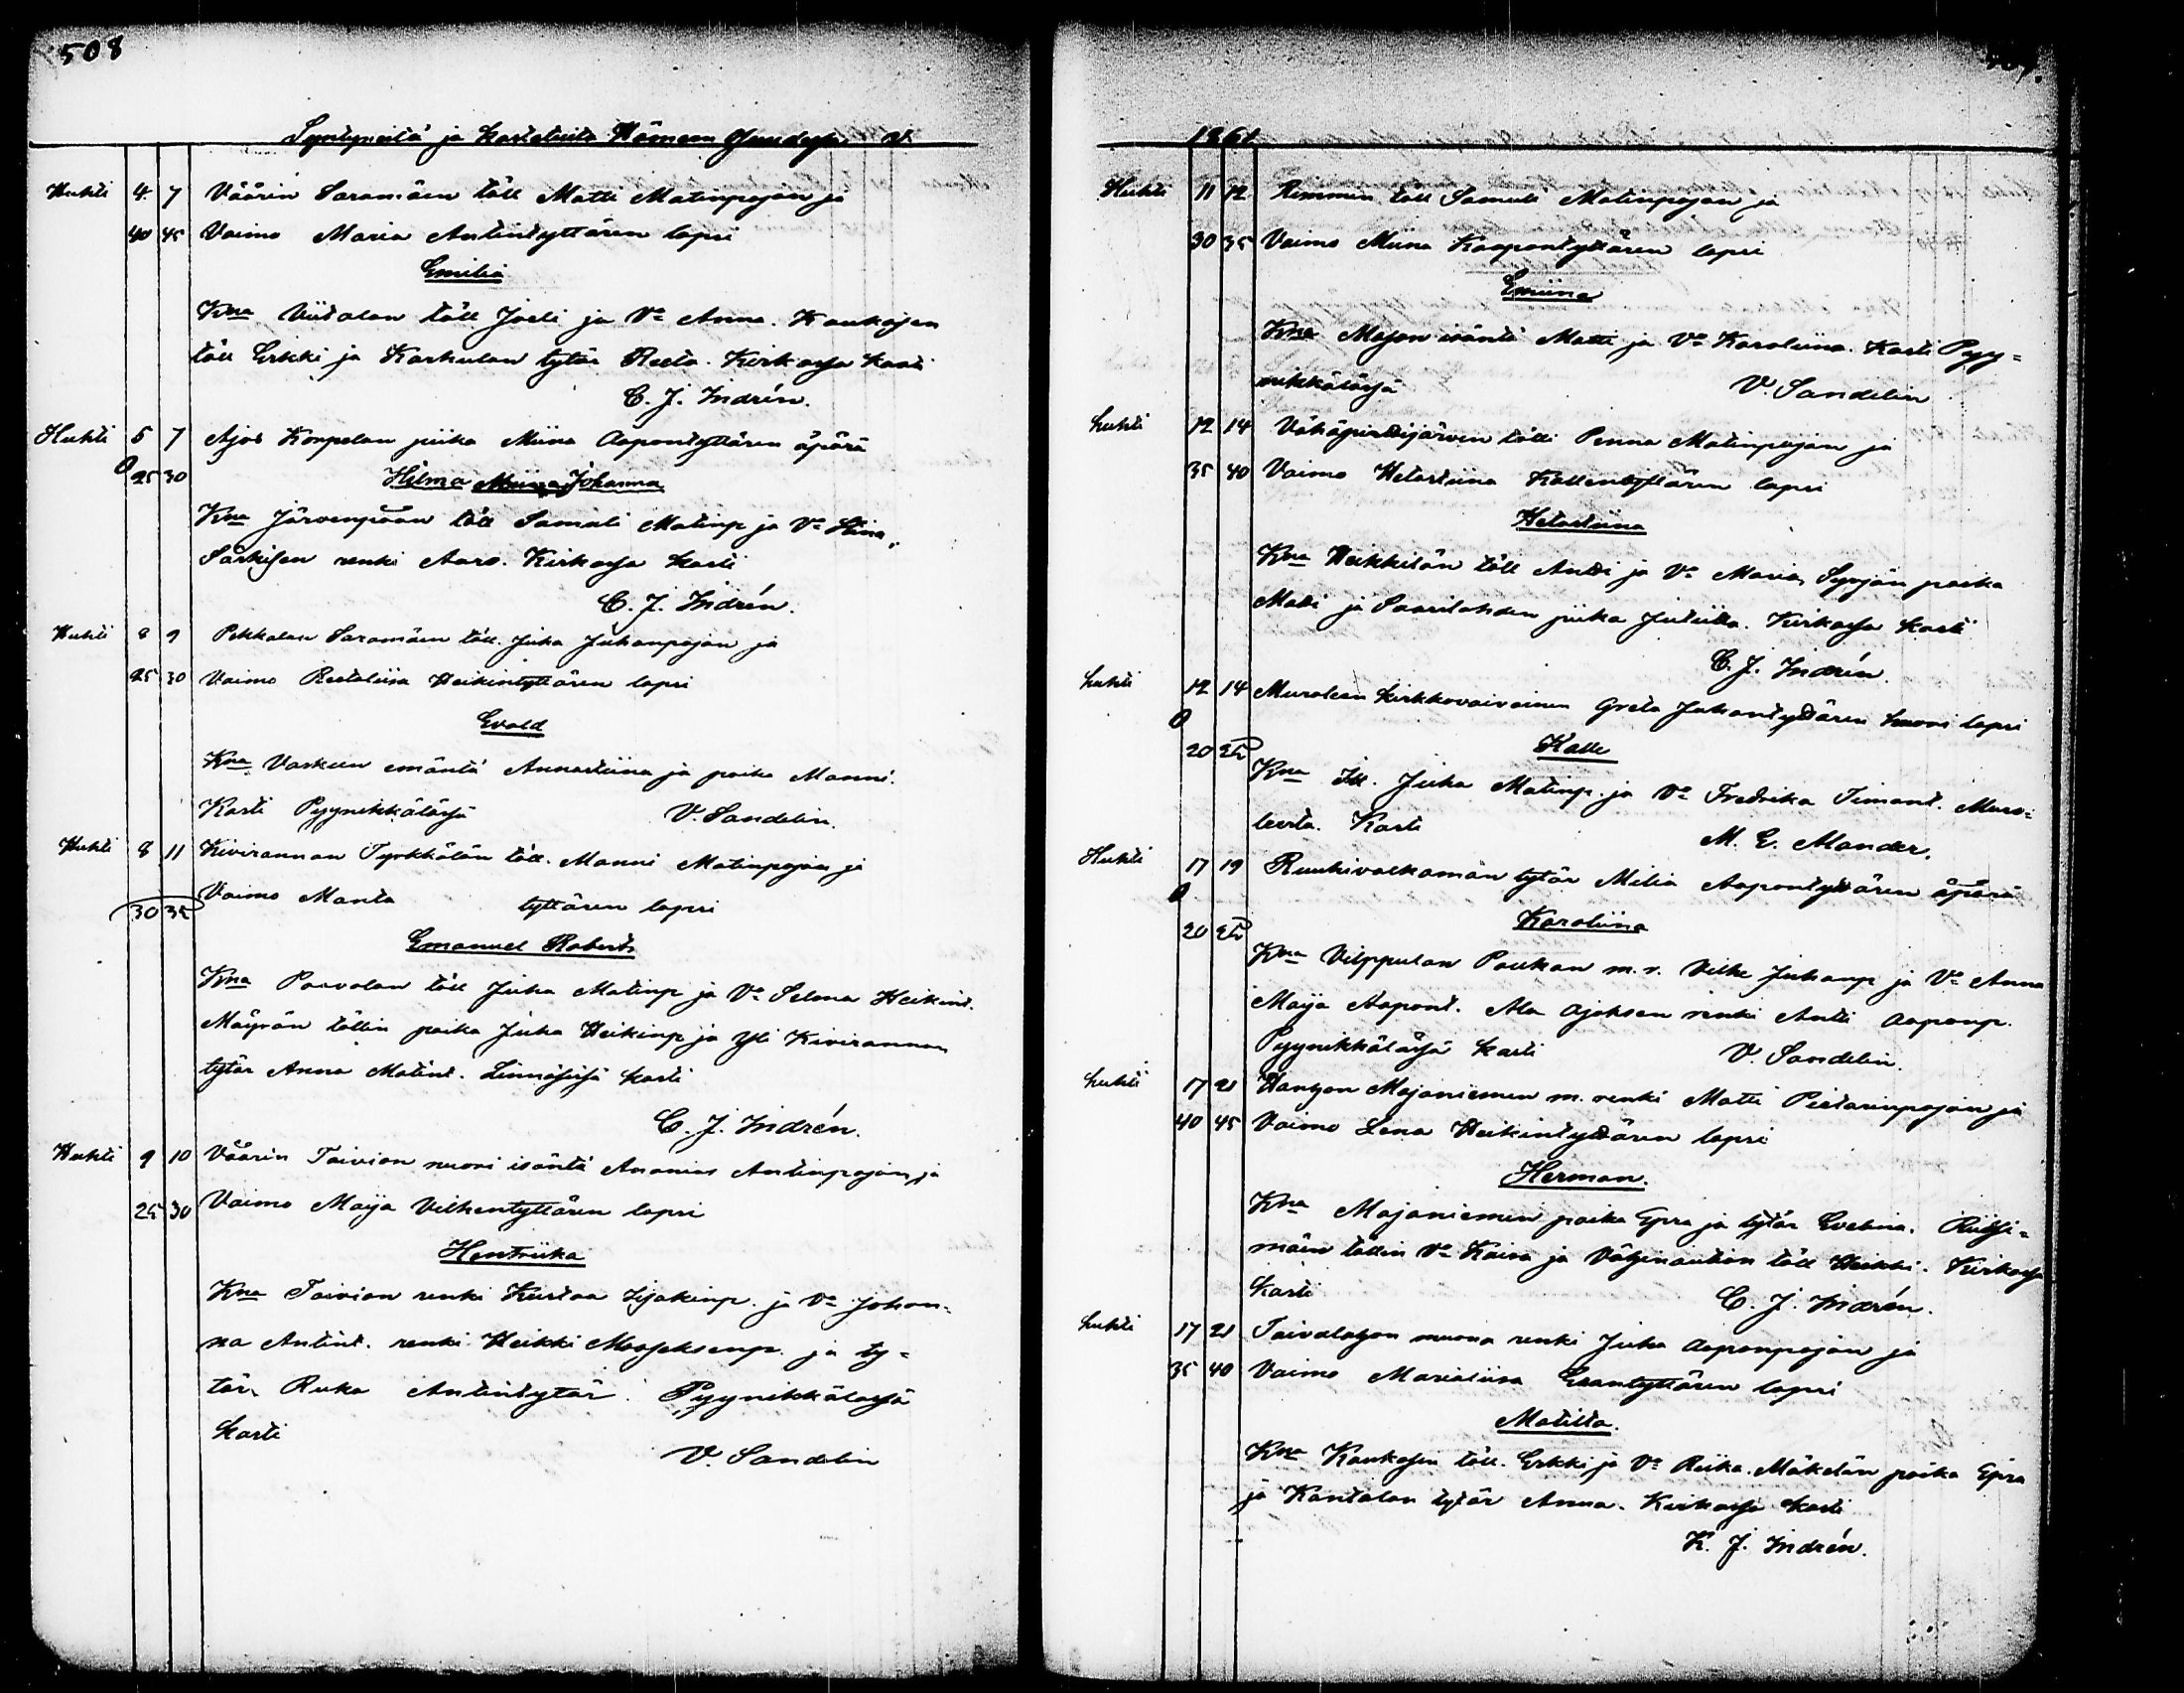 508
Syntyneitä ja kastetuita Hämeen
Huhti 4 7 Väärin Saramäen töll Matti Matinpojan ja
40 45 Vaimo Maria Antintyttären lapsi
Emilia
Kna Viitalan töll Joeli ja Vo Anna. Kaukosen
töll Erkki ja Karhulan tytär Reeta. Kirkossa kasti
C. J. Indrén.
Huhti 5 7 Ajos Korpelan piika Miina Aapontyttären äpärä
0 25 30 Hilma Miina Johanna
Kna Järvenpään töll Samuli Matinp ja Vo Stina,
Särkisen renki Aaro. Kirkossa kasti
C. J. Indrén.
Huhti 8 9 Pekkalan Saramäen töll. Juha Juhanpojan ja
25 30 Vaimo Reetaliisa Heikintyttären lapsi
Evald
Kna Vaskuun emäntä Annastiina ja poika Manni.
Kasti Pyynikkälässä V. Sandelin.
Huhti 8 11 Kivirannan Tyrkkölän töll. Manni Matinpojan ja
30 35 Vaimo Manta tyttären lapsi
Emanuel Robert
Kna Paavolan töll Juha Matinp ja Vo Selma Heikint.
Mäyrän töllin poika Juha Heikinp ja Yli Kivirannan
tytär Anna Matint. kasti
C. J. Indrén.
Huhti 9 10 Väärin Toivion nuori isäntä Ananias Antinpojan ja
25 30 Vaimo Maija Vilhentyttären lapsi
Hentriika
Kna Toivion renki Kustaa Iisakinp. ja Vo Johan-
na Antint. renki Heikki Mooseksenp. ja ty-
tär Ruka Antintytär. Pyynikkälässä
kasti
V. Sandelin
1861
Huhti 11 12 Rimmin töll Samuli Matinpojan ja
30 35 Vaimo Miina Kaapontyttären lapsi
Emiina
Kna Mason isäntä Matti ja Vo Karoliina. Kasti Pyy-
nikkälässä V. Sandelin
huhti 12 14 tölli Penna Matinpojan ja
35 40 Vaimo Hetastiina Kallentyttären lapsi
Hetastiina
Kna Heikkilän töll Antti ja Vo Maria, Syvjän poika
Matti ja Saarilahden piika Jutiitta. Kirkossa kasti
C. J. Indrén.
huhti 12 14 Muroleen kirkkovaivainen Greta Juhantyttären huori lapsi
0 20 25 Kalle
Kna Itl. Juha Matinp. ja Vo Fredrika Timont. Muro-
leesta. Kasti M. E. Mander.
Huhti 17 19 Ruuhivalkaman tytär Milia Aapontyttären äpärä
0 20 25 Karoliina
Kna Vilppulan Poukan m. r. Vilhe Juhanp ja Vo Anna
Maija Aapont. Ala Ajoksen renki Antti Aaponp.
Pyynikkälässä kasti V. Sandelin.
huhti 17 21 Hangon Majaniemen m. renki Matti Pietarinpojan ja
40 45 Vaimo Lena Heikintyttären lapsi
Herman.
Kna Majaniemen poika Epra ja tytär Evelina. Riihi-
mäen töllin Vo Kaisa ja töll Heikki. Kirkossa
kasti C. J. Indrén.
huhti 17 21 Taivalahon muona renki Juha Aaponpojan ja
35 40 Vaimo Marialiisa Esantyttären lapsi
Matilta.
Kna Kaukosen töll. Erkki ja Vo Riika. Mäkelän poika Epra
ja Kantolan tytär Anna. Kirkossa kasti
K. J. Indrén.